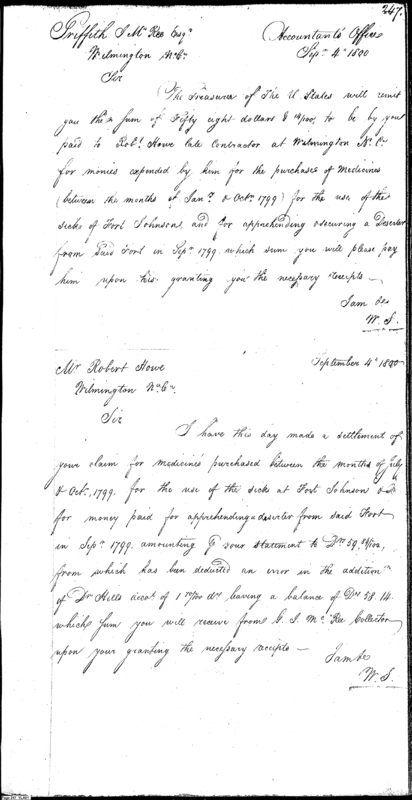 247.
Griffith J Mc Ree Esqr
Accountants Office
Wilmington No Ca
Sepr 4th 1800
Sir
The Treasurer of The U States will remit
you the sum of Fifty eight dollars & 14/100, to be by you
paid to Robt Howe late Contractor at Wilmington No Ca
for monies expended by him for the purchases of Medicines
(between the months of Jany & Octr 1799) for the use of the
sicks of Fort Johnson, and for apprehending & securing a Deserter
from said Fort in Sepr 1799. which sum you will please pay
him upon his granting you the necessary receipts —
I am &c
W. S.
September 4th 1800
Mr Robert Howe
Wilmington No Ca
Sir
I have this day made a settlement of
your claim for medicines purchased between the months of July
& Octr 1799. for the use of the sicks at Fort Johnson &
for money paid for apprehending a deserter from said Fort
in Sepr 1799. amounting your statement to Drs 59.
from which has been deducted an error in the addition
of Dr Hills acct of 1 leaving a balance of Drs 58.14.
which sum you will receive from G. J. Mc Ree Collector
upon your granting the necessary receipts —
I am &c
W. S.